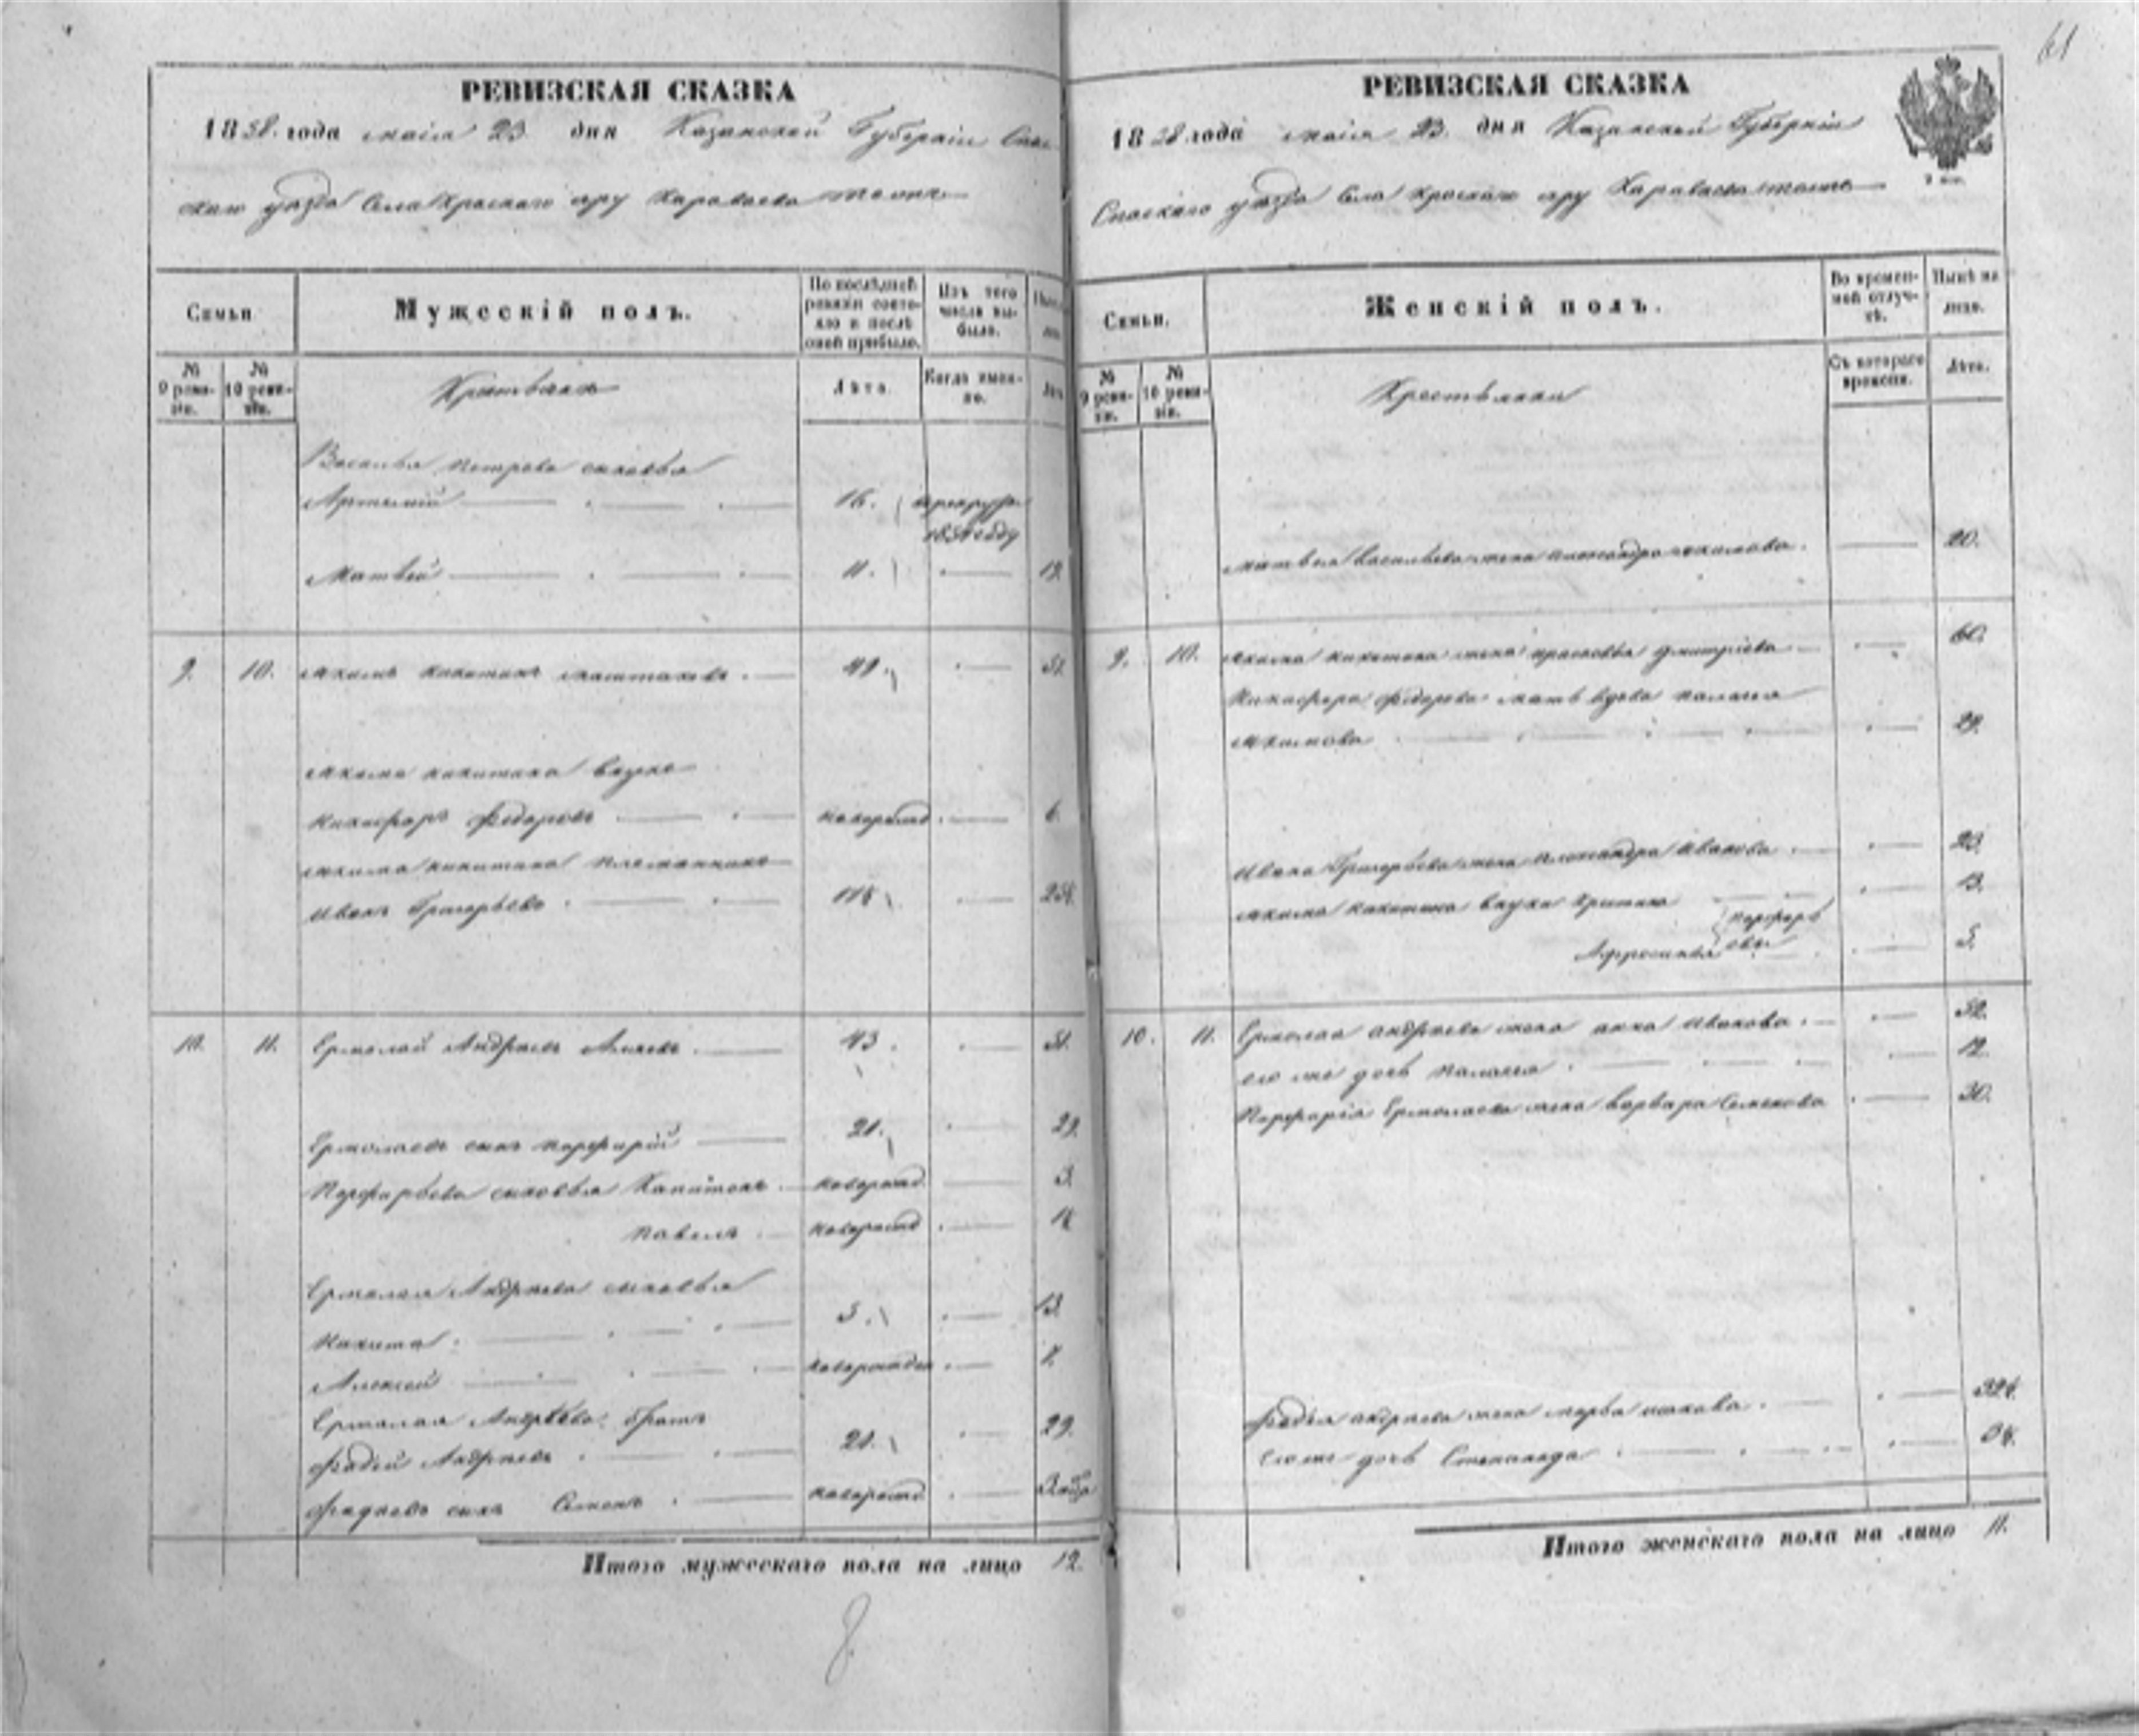 РЕВИЗСКАЯ СКАЗКА
1858 года мая 23 дня Казанской Губернiи Спас
скаго уезда Села Краснаго яру Караваева тожъ
Семьи
Мужескiй полъ.
По последней ревизiи состояло и после оной прибыло.
Изъ того числа выбыло.
№ 9 ревизiи.
№ 10 ревизiи.
Крестьяне
Лета.
Когда именно.
Василья Петрова сыновья
Артемiй 16. въ рекруты
году
Матвей 11. 19.
9. 10. Акимъ Никитинъ 51.
Акима Никитина внукъ
Никифоръ Федоровъ новорожд. 6
Акима Никитина племянникъ
Иванъ Григорьевъ
10. 11. Ермолай Андреевъ 43. 51.
Ермолаевъ сынъ Порфирiй 21. 29.
Порфирьева сыновья Капитонъ новорожд. 3.
Павелъ новорожд.
Ермолая Андреева сыновья
Никита 5. 13.
Алексей новорожден
Ермолая Андреева братъ
Фадей Андреевъ 21. 29.
Фадеевъ сынъ Семенъ новорожд.
Итого мужескаго пола на лицо 12.
8
61
РЕВИЗСКАЯ СКАЗКА
1858 года мая 23 дня Казанской Губернiи
Спаскаго уезда Села Краснаго яру Караваева тожъ
Семьи.
Женскiй полъ.
Во временной отлучке.
Ныне на лицо.
№ 9 ревизiи.
№ 10 ревизiи.
Крестьянки
Съ котораго времени.
Лета.
Матвея Васильева жена Александра Акимова. 20.
9. 10. Акима Никитина жена Прасковья Дмитрiева 60.
Никифора Федорова мать вдова Палагея
Акимова 29.
Ивана Григорьева жена Александра Иванова 23.
Акима Никитина внуки 13.
Афросинья 5.
10. 11. Ермолая Андреева жена Анна Иванова. 52.
его же дочь Палагея 12.
Порфирiя Ермолаева жена Варвара Семенова 30.
Фадея Андреева жена Марфа
Его же дочь Степанида
Итого женскаго пола на лицо 11.